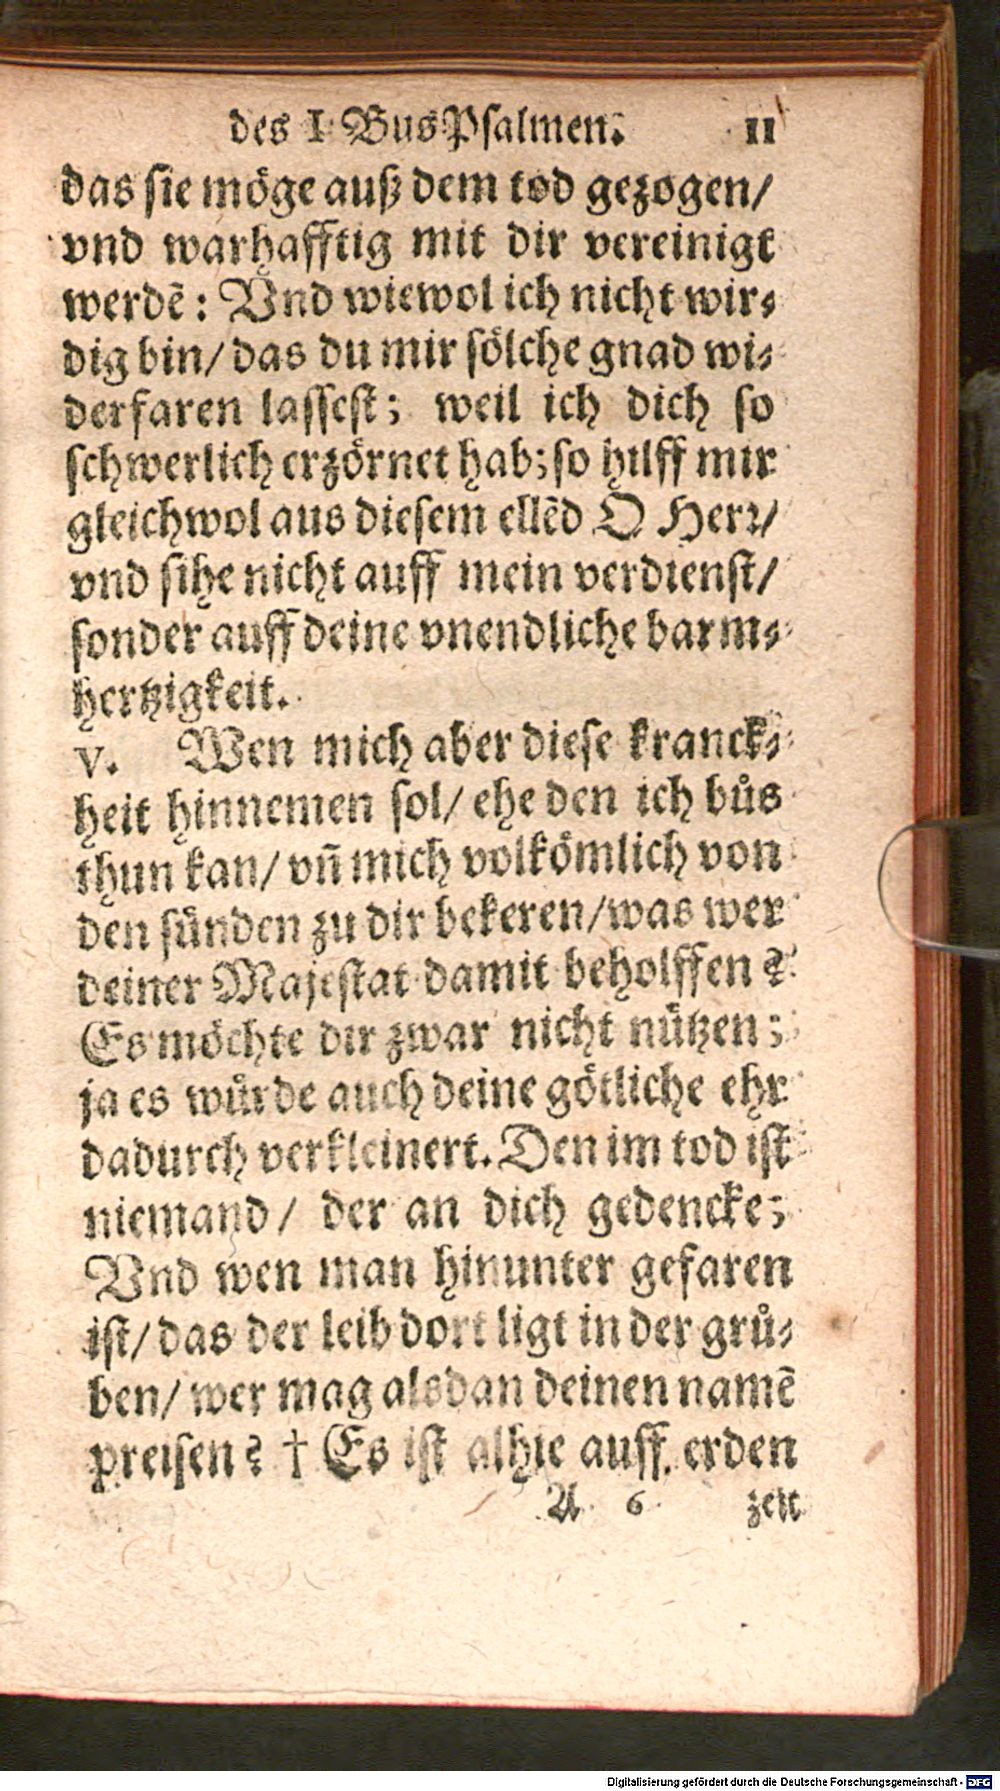 des I BusPsalmen. 11
das sie möge auß dem tod gezogen/
vnd warhafftig mit dir vereinigt
werdē: Vnd wiewol ich nicht wir⸗
dig bin/ das du mir sölche gnad wi⸗
derfaren lassest; weil ich dich so
schwerlich erzörnet hab; so hilff mir
gleichwol aus diesem ellēd O Herr/
vnd sihe nicht auff mein verdienst/
sonder auff deine vnendliche barm⸗
hertzigkeit.
V. Wen mich aber diese kranck⸗
heit hinnemen sol/ ehe den ich bůs
thun kan/ vn̄ mich volkömlich von
den sünden zu dir bekeren/ was wer
deiner Majestat damit beholffen?
Es möchte dir zwar nicht nützen;
ja es wůrde auch deine götliche ehr
dadurch verkleinert. Den im tod ist
niemand/ der an dich gedencke;
Vnd wen man hinunter gefaren
ist/ das der leib dort ligt in der grů⸗
ben/ wer mag alsdan deinen namē
preisen? † Es ist alhie auff erden
A 6 zeit
Digitalisierung gefördert durch die Deutsche Forschungsgemeinschaft - DFG